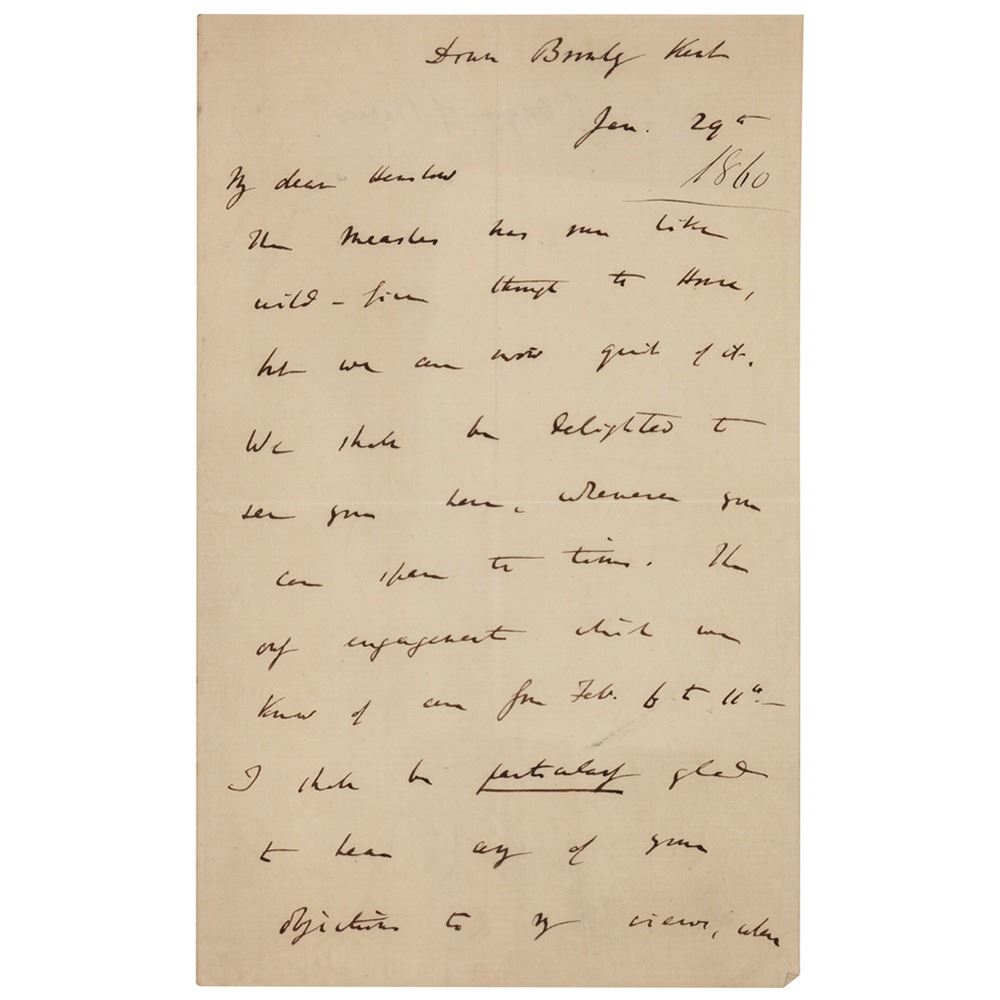 Down Bromley Kent
Jan. 29th
1860
My dear Henslow
The Measles has run like
wild-fire through the House,
but we are now quit of it.
We shall be delighted to
see you here, whenever you
can spare the time. The
only engagement which we
know of are from Feb. 6 to 11th.—
I shall be particularly glad
to hear any of your
objections to my views, when